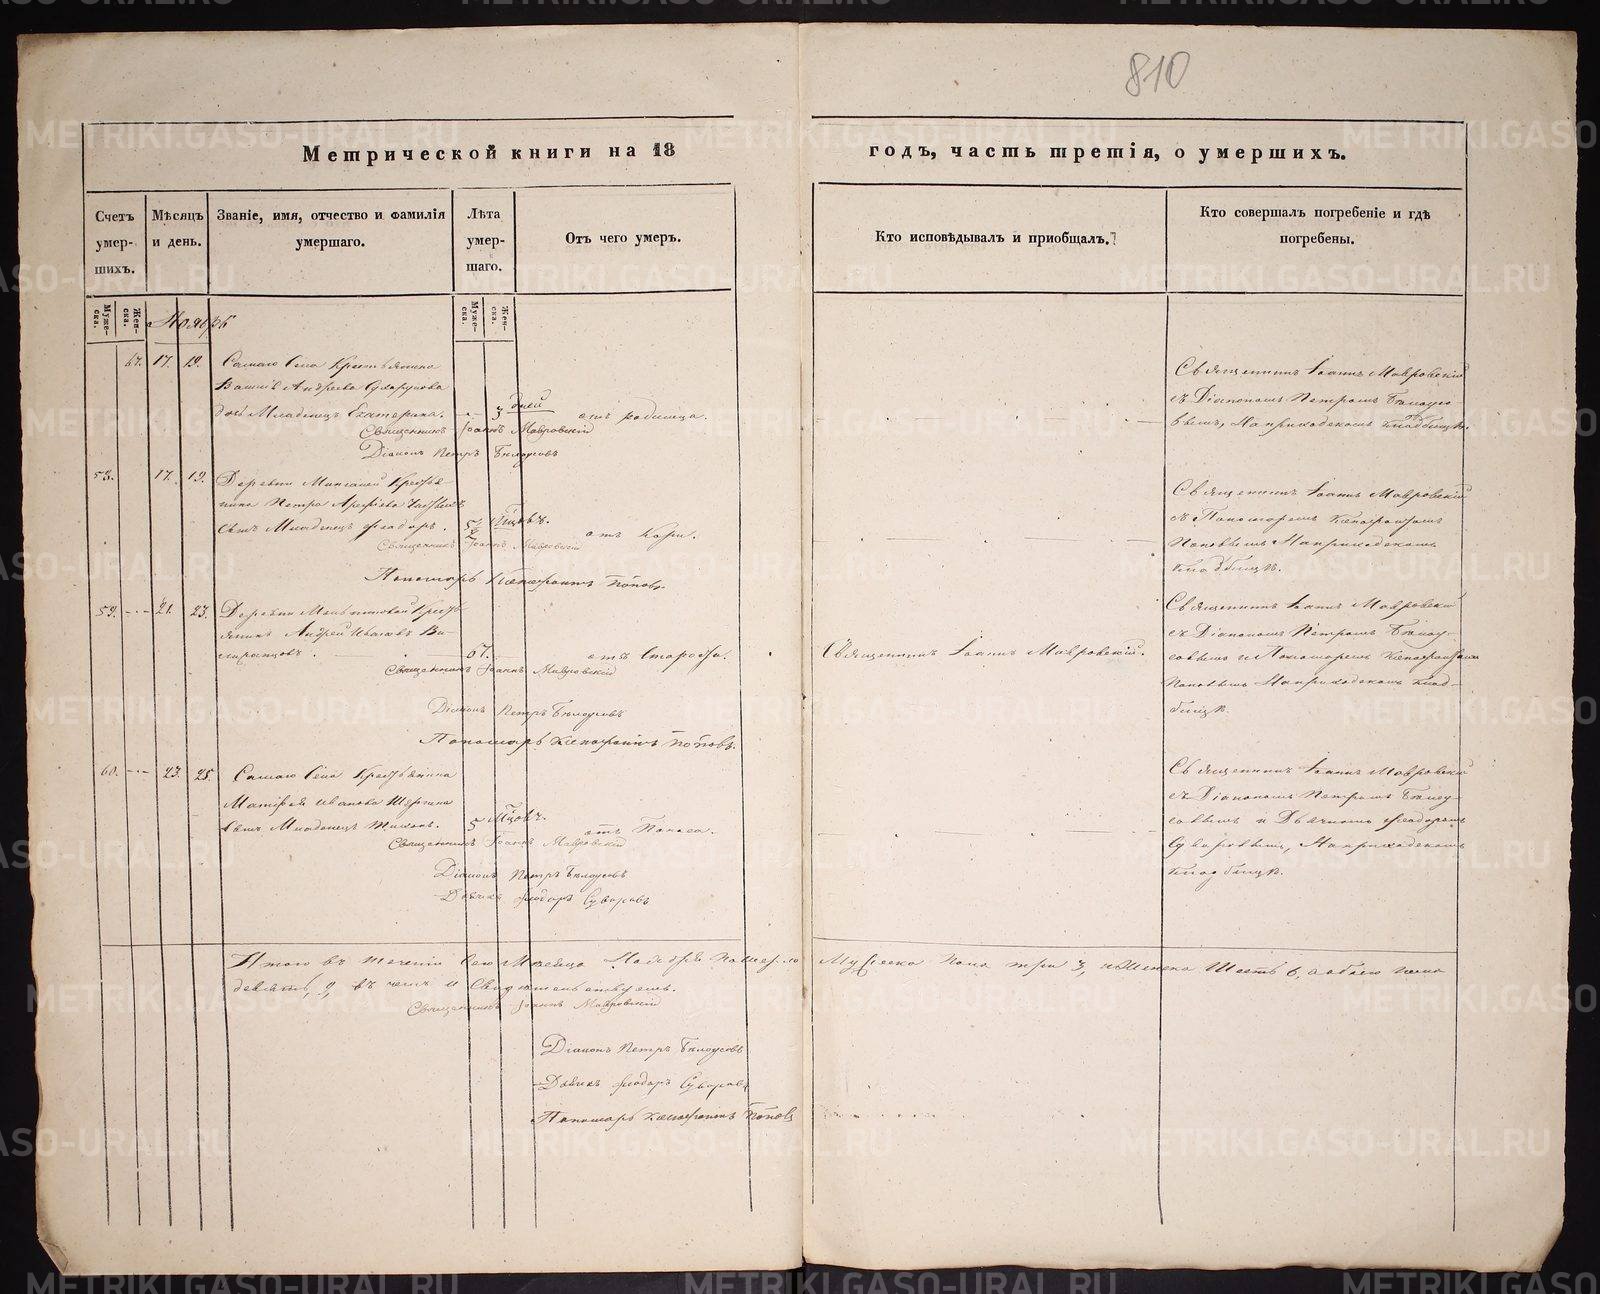 810
Метрической книги на 18 годъ, часть третія, о умершихъ.
Счетъ умер-шихъ.
Мѣсяцъ и день.
Званіе, имя, отчество и фамилія умершаго.
Лѣта умер-шаго.
Отъ чего умеръ.
Кто исповѣдывалъ и приобщалъ.
Кто совершалъ погребеніе и гдѣ погребены.
Муже-ска.
Жен-ска.
Муже-ска.
Жен-ска.
Ноябрь
67. 17. 19. Самаго Села Крестьянина
Андреева
дочь Младенецъ Екатерина. 3 дней отъ родимца.
Священникъ Іоаннъ Мавровскій
Діаконъ Петръ Бѣлоусовъ
Священникъ Іоаннъ Мавровскій
съ Діакономъ Петромъ Бѣлоусо-
вымъ, На приходскомъ кладбищѣ.
58. 17. 19. Деревни Крестья-
нина Петра
сынъ Младенецъ Феодоръ. отъ Кори.
Священникъ Іоаннъ Мавровскій
Пономарь Ксенофонтъ Поповъ.
Священникъ Іоаннъ Мавровскій
съ Пономаремъ Ксенофонтомъ
Поповымъ На приходскомъ
кладбищѣ.
59. 21. 23. Деревни Крестья-
янинъ Андрей Ивановъ
67. отъ Старости. Священникъ Іоаннъ Мавровскій.
Священникъ Іоаннъ Мавровскій
Діаконъ Петръ Бѣлоусовъ
Пономарь Ксенофонтъ Поповъ.
Священникъ Іоаннъ Мавровскій
съ Діакономъ Петромъ Бѣлоу-
совымъ и Пономаремъ Ксенофонтомъ
Поповымъ На приходскомъ клад-
бищѣ.
60. 23. 25. Самаго Села Крестьянина
Матфея Иванова
сынъ Младенецъ 5 Мцовъ. отъ Поноса.
Священникъ Іоаннъ Мавровскій
Діаконъ Петръ Бѣлоусовъ
Дьячекъ Феодоръ Суворовъ
Священникъ Іоаннъ Мавровскій
съ Діакономъ Петромъ Бѣлоу-
совымъ и Дьячкомъ Феодоромъ
Суворовымъ, На приходскомъ
кладбищѣ.
Итого въ теченіи Сего Месяца Ноября Померло Мужеска Пола три 3, Женска Шесть 6, а обаего пола
девять, 9, въ чемъ и Свидетельствуемъ.
Священникъ Іоаннъ Мавровскій
Діаконъ Петръ Бѣлоусовъ
Дьячекъ Феодоръ Суворовъ
Пономарь Ксенофонтъ Поповъ
METRIKI.GASO-URAL.RU